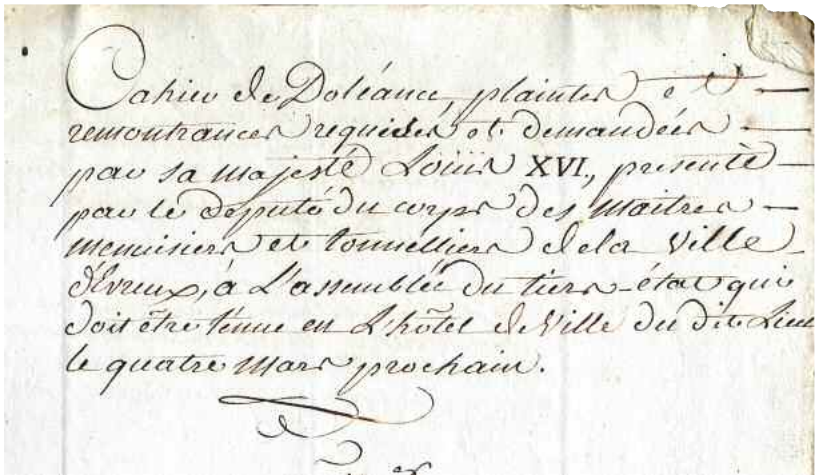 Cahier de Doléance, plaintes et
remontrances requises et demandées
par sa majesté Loüis XVI., presenté
par le deputé du corps des maitres
menuisiers et tonnelliers de la ville
d'Evreux, à L'assemblée du tiers-état qui
doit être tenue en L'hôtel de Ville du dit Lieu
le quatre mars prochain.